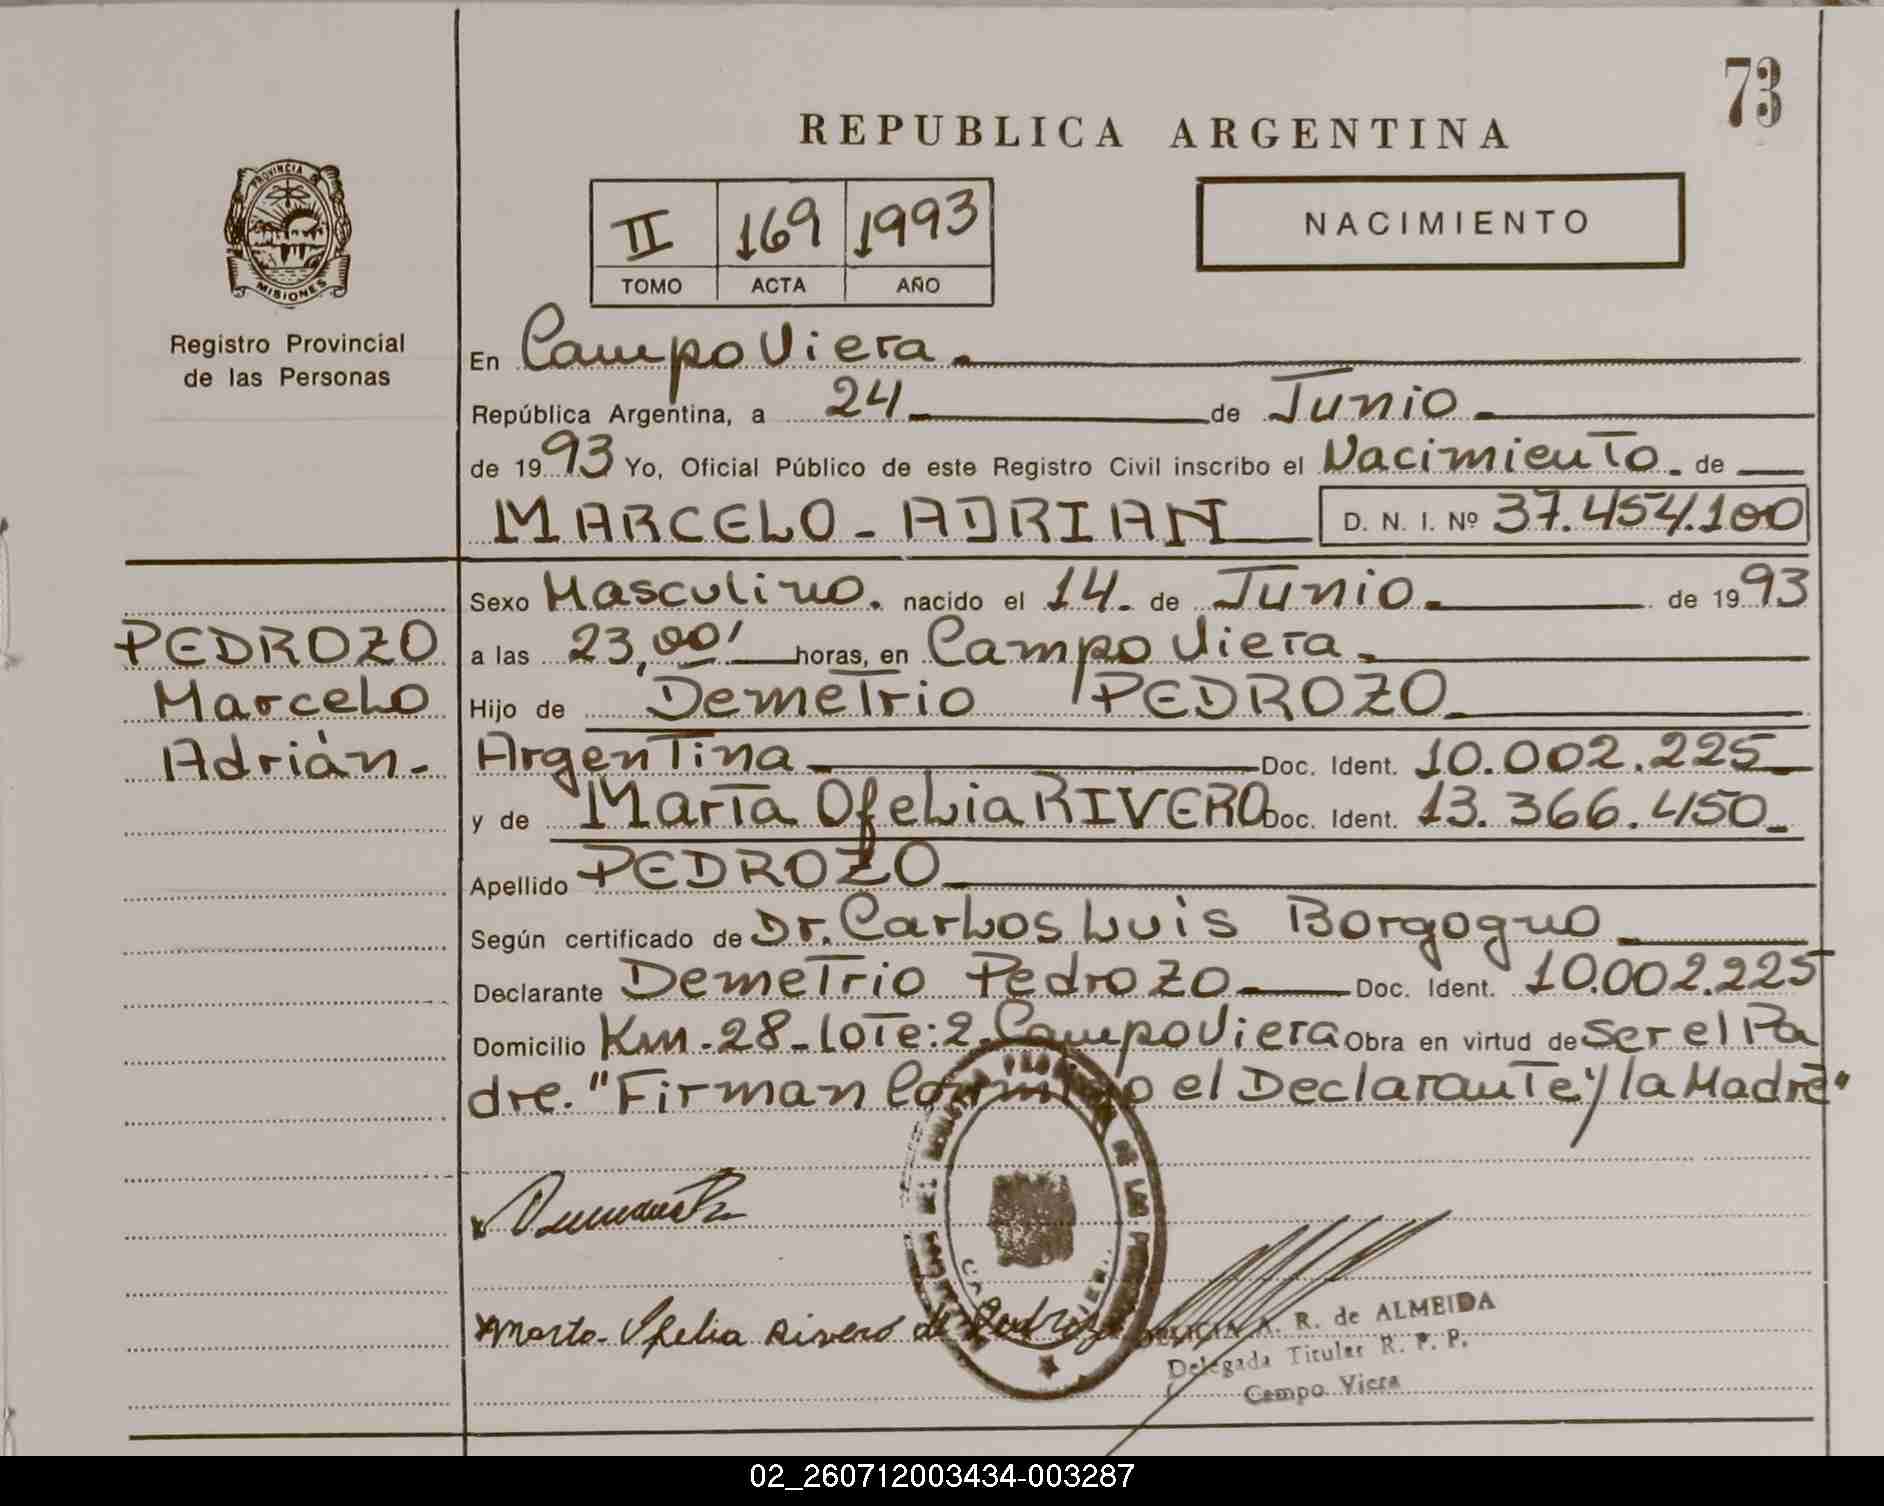 73
REPUBLICA ARGENTINA
PROVINCIA DE
MISIONES
Registro Provincial
de las Personas
II 169 1993
TOMO ACTA AÑO
NACIMIENTO
En Campo Viera.
República Argentina, a 24 de Junio
de 1993 Yo, Oficial Público de este Registro Civil inscribo el Nacimiento de
MARCELO - ADRIAN D. N. I. Nº 37.454.100
Sexo Masculino. nacido el 14 de Junio de 1993
a las 23,00' horas, en Campo Viera.
Hijo de Demetrio PEDROZO
Argentina Doc. Ident. 10.002.225
y de Marta Ofelia RIVERO Doc. Ident. 13.366.450
Apellido PEDROZO
Según certificado de Dr. Carlos Luis Borgogno
Declarante Demetrio Pedrozo Doc. Ident. 10.002.225
Domicilio Km-28-Lote:2. Campo Viera Obra en virtud de ser el Pa
dre. "Firman Conmigo el Declarante y la Madre"
PEDROZO
Marcelo
Adrián.
Marta Ofelia Rivero de Pedrozo
A. R. de ALMEIDA
Delegada Titular R. P. P.
Campo Viera
02_260712003434-003287